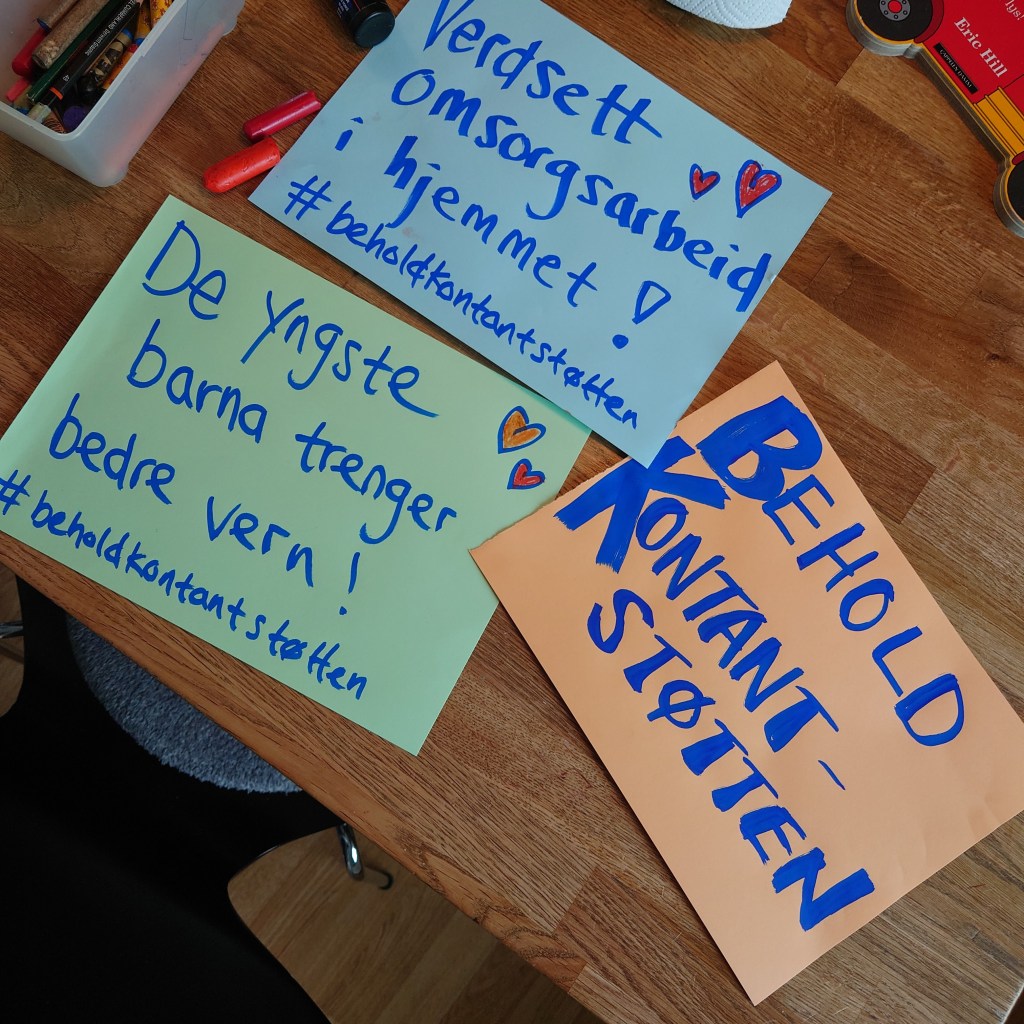 Verdsett
omsorgsarbeid
i hjemmet !
#beholdkontantstøtten
De yngste
barna trenger
bedre vern !
#beholdkontantstøtten
BEHOLD
KONTANT-
STØTTEN
Eric Hill
CAPPELEN DAMM